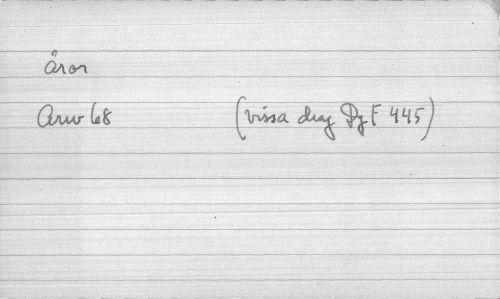 åror
Arw 68 (vissa drag Pg F 445)